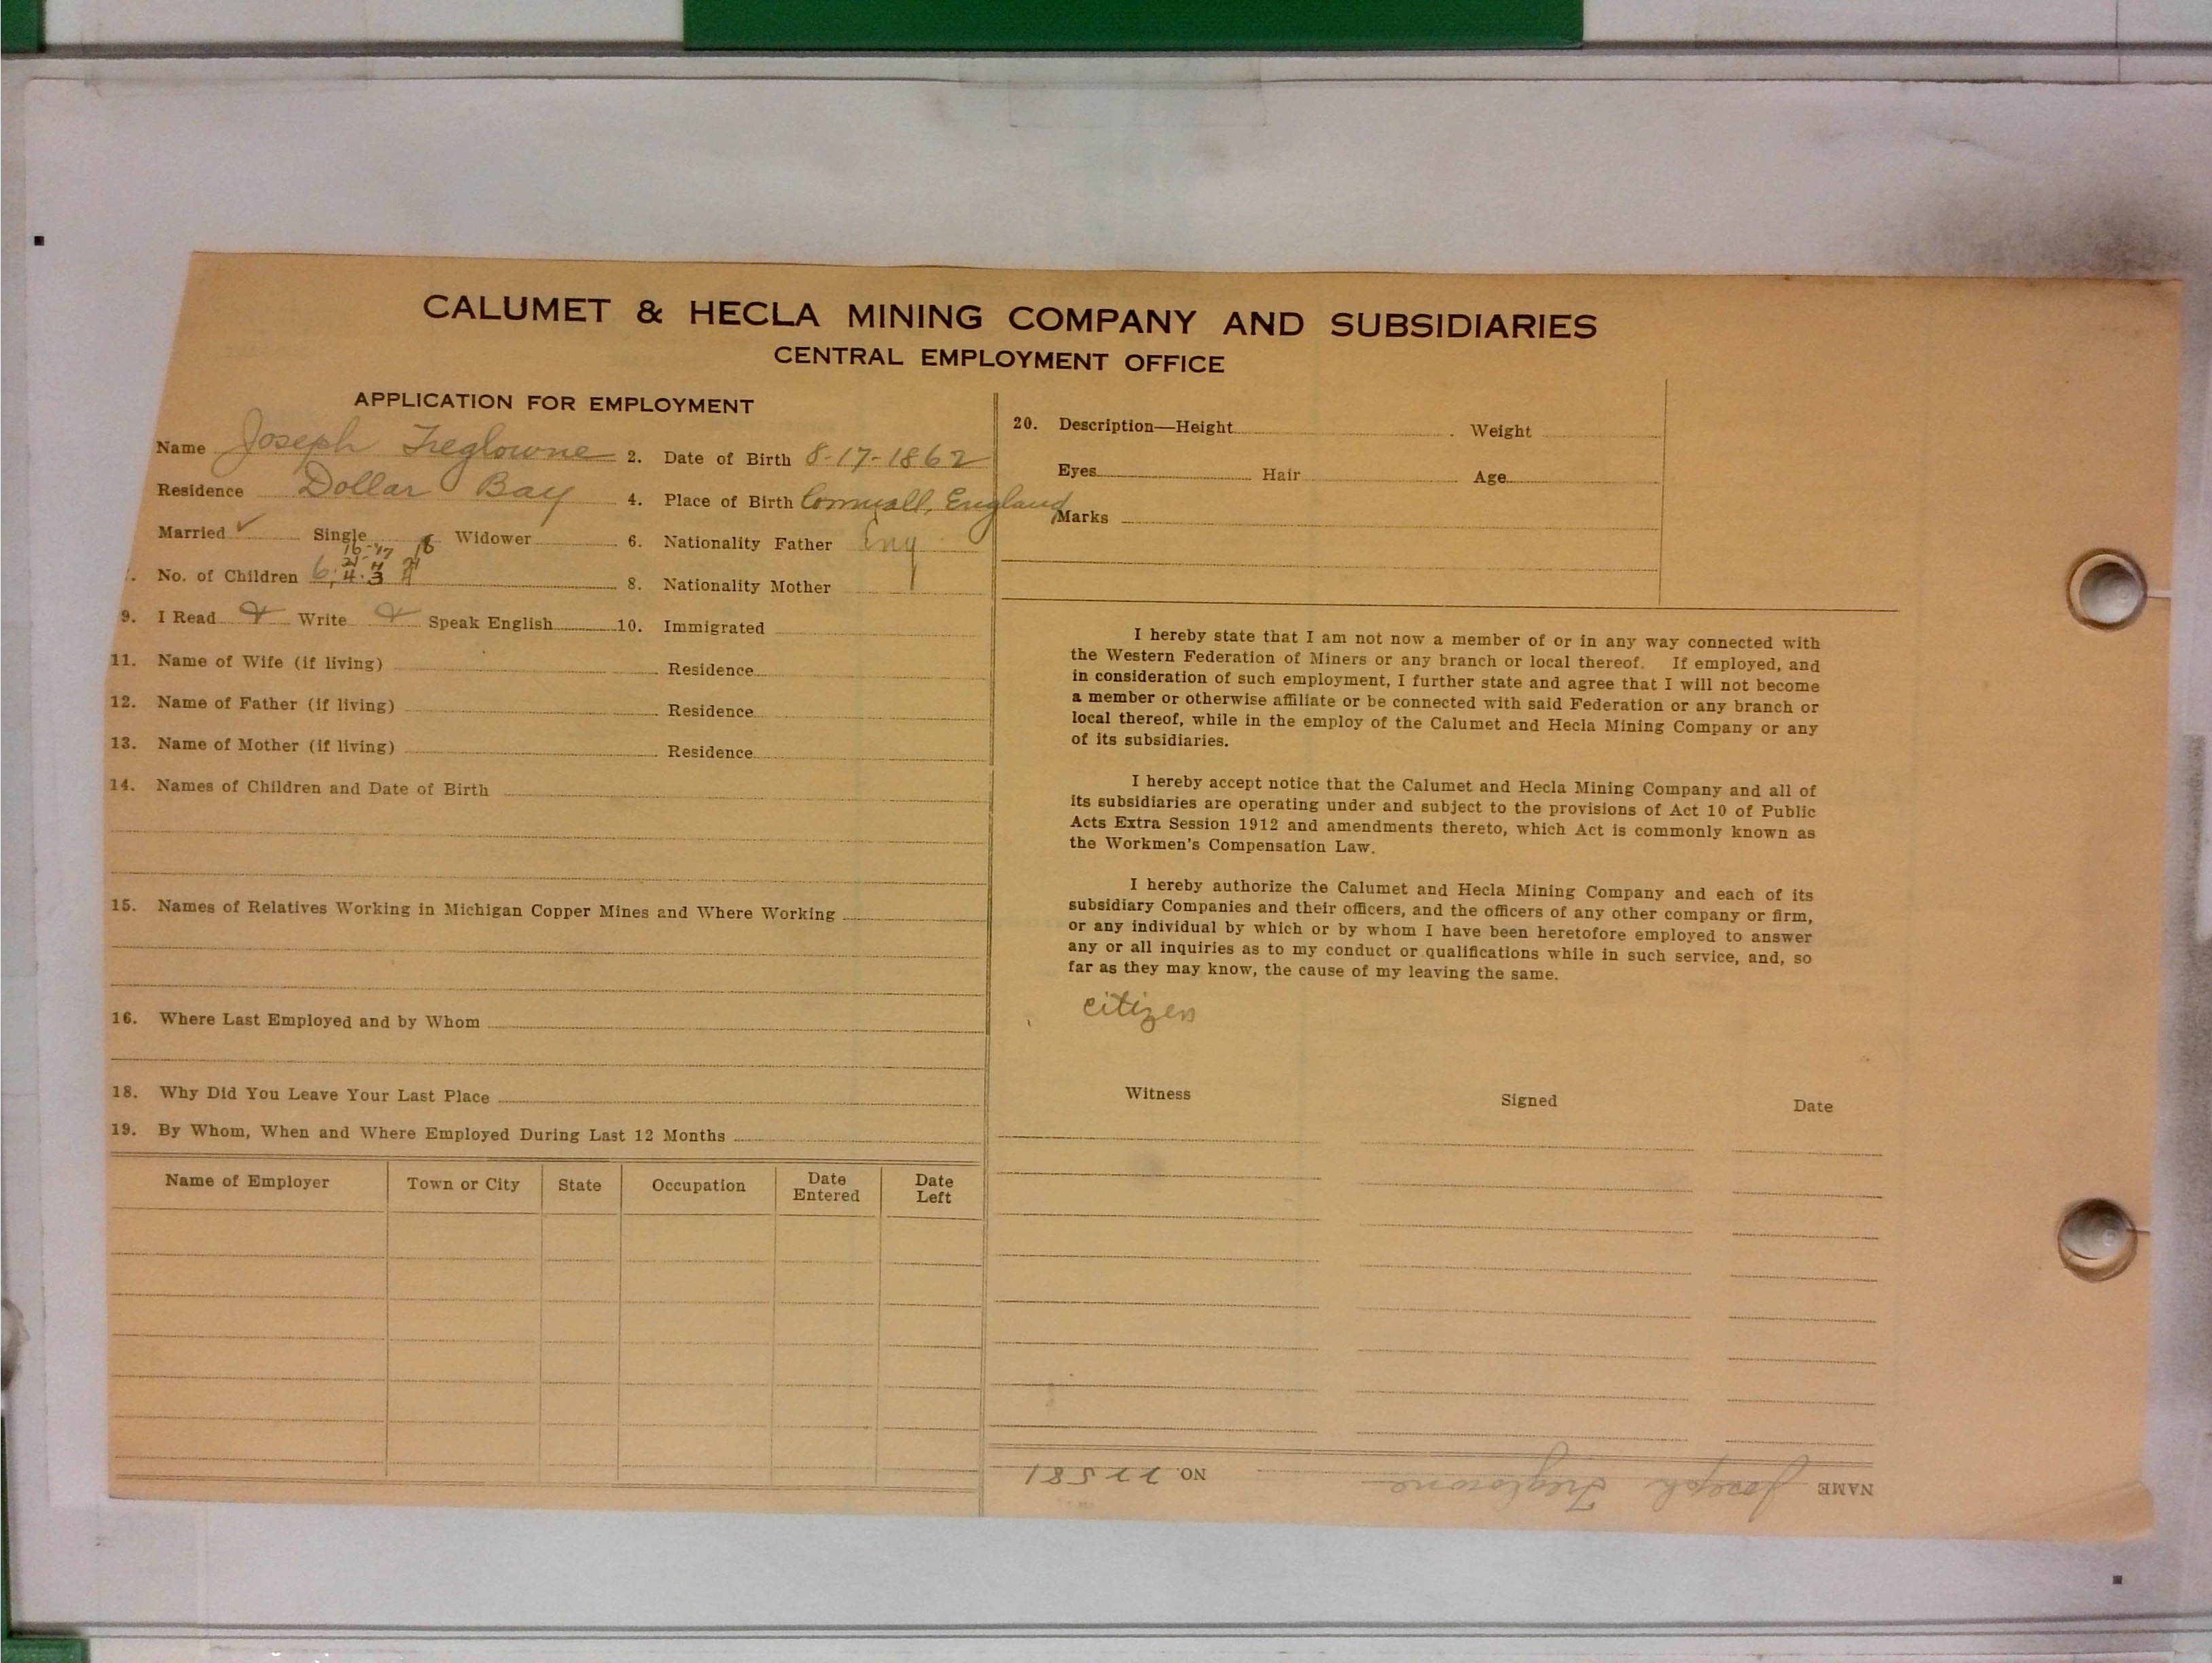 CALUMET & HECLA MINING COMPANY AND SUBSIDIARIES
CENTRAL EMPLOYMENT OFFICE
APPLICATION FOR EMPLOYMENT
Name Joseph Treglowne 2. Date of Birth 8-17-1862
Residence Dollar Bay 4. Place of Birth Cornwall, England
Married ✓ Single Widower 6. Nationality Father Eng
No. of Children 6 8. Nationality Mother
9. I Read Write Speak English 10. Immigrated
11. Name of Wife (if living) Residence
12. Name of Father (if living) Residence
13. Name of Mother (if living) Residence
14. Names of Children and Date of Birth
15. Names of Relatives Working in Michigan Copper Mines and Where Working
16. Where Last Employed and by Whom
18. Why Did You Leave Your Last Place
19. By Whom, When and Where Employed During Last 12 Months
Name of Employer Town or City State Occupation Date Entered Date Left
20. Description—Height Weight
Eyes Hair Age
Marks
I hereby state that I am not now a member of or in any way connected with
the Western Federation of Miners or any branch or local thereof. If employed, and
in consideration of such employment, I further state and agree that I will not become
a member or otherwise affiliate or be connected with said Federation or any branch or
local thereof, while in the employ of the Calumet and Hecla Mining Company or any
of its subsidiaries.
I hereby accept notice that the Calumet and Hecla Mining Company and all of
its subsidiaries are operating under and subject to the provisions of Act 10 of Public
Acts Extra Session 1912 and amendments thereto, which Act is commonly known as
the Workmen's Compensation Law.
I hereby authorize the Calumet and Hecla Mining Company and each of its
subsidiary Companies and their officers, and the officers of any other company or firm,
or any individual by which or by whom I have been heretofore employed to answer
any or all inquiries as to my conduct or qualifications while in such service, and, so
far as they may know, the cause of my leaving the same.
citizen
Witness Signed Date
NAME Joseph Treglowne NO. 22581